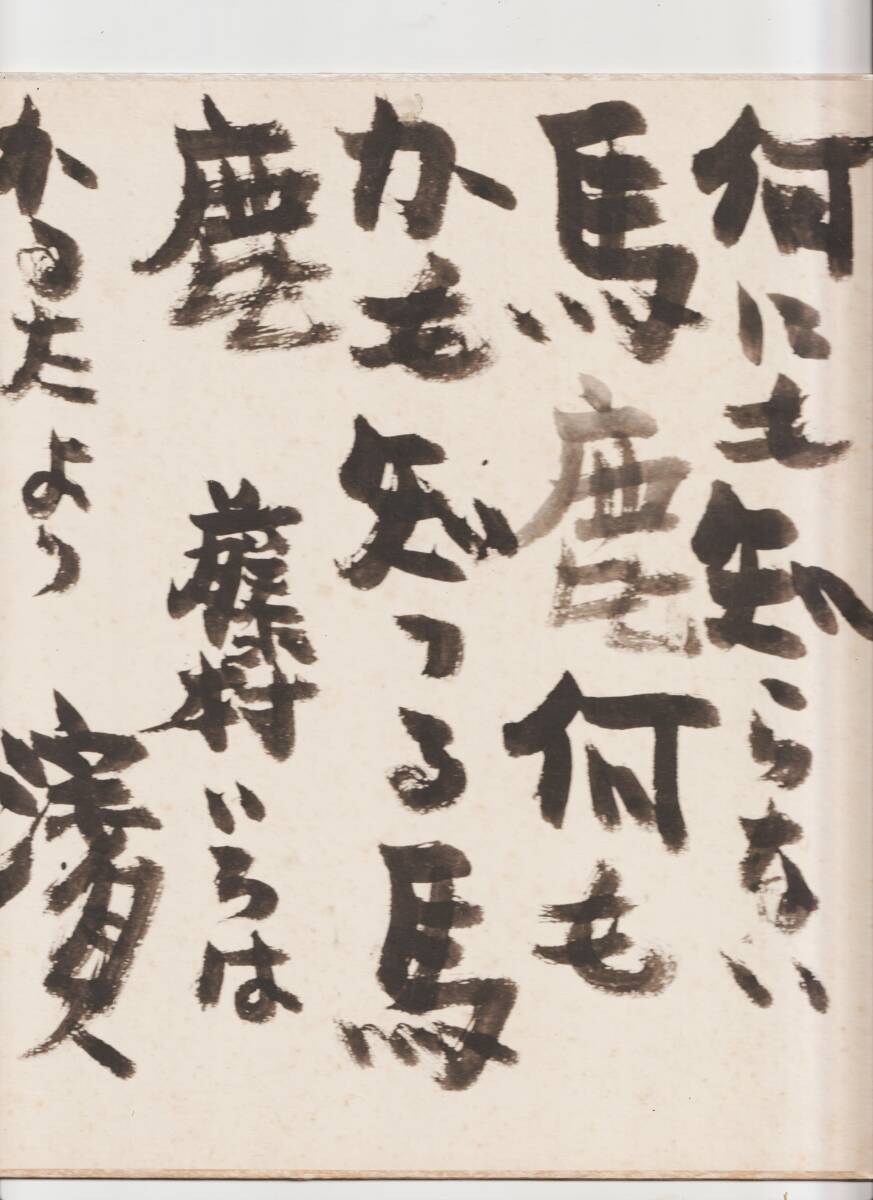 何にも知らない
馬鹿何も
かも知つる馬
鹿 藤村いろは
かるたより 濱